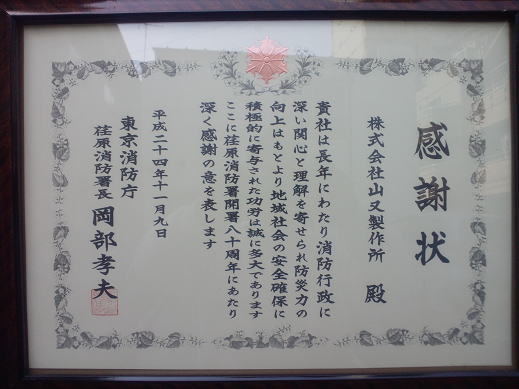 感謝状
株式会社山又製作所 殿
貴社は長年にわたり消防行政に
深い関心と理解を寄せられ防災力の
向上はもとより地域社会の安全確保に
積極的に寄与された功労は誠に多大であります
ここに荏原消防署開署八十周年にあたり
深く感謝の意を表します
平成二十四年十一月九日
東京消防庁
荏原消防署長 岡部孝夫